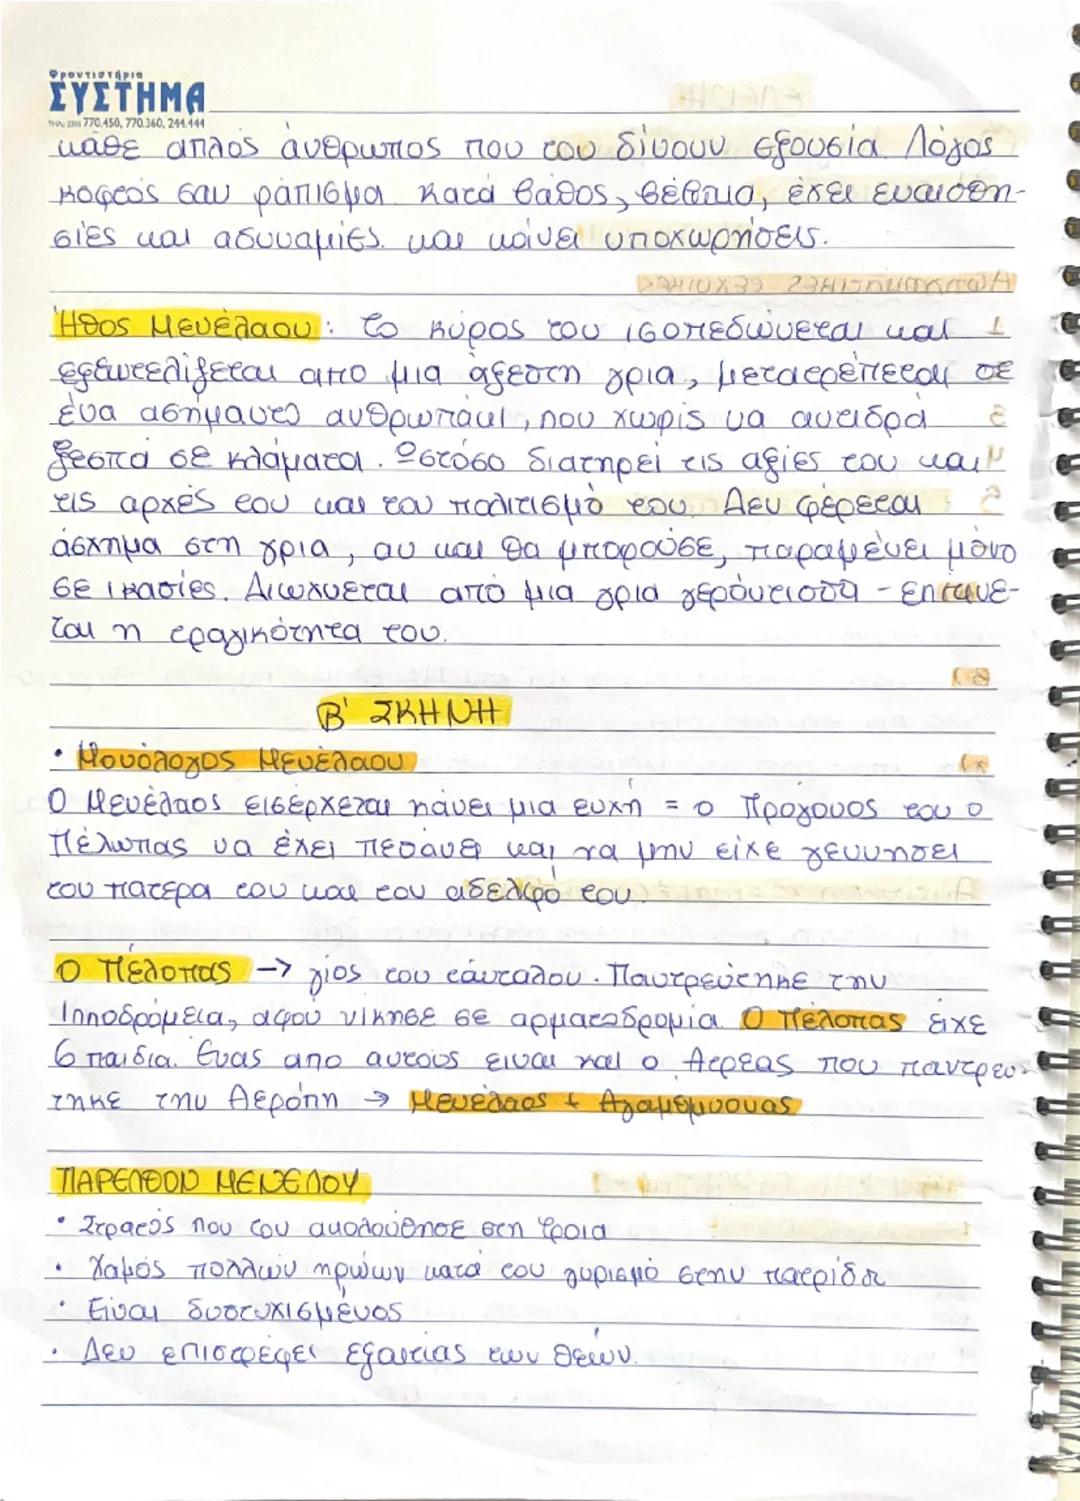 Φροντιστήρια
ΣΥΣΤΗΜΑ
770.450, 770.360, 244.444
κάθε απλός άνθρωπος που του δίνουν εξουσία. Λόγος
κοφτός σαν ράπισμα. Κατά βάθος, βέβαια, έχει ευαισθη-
σίες και αδυναμίες. και κάνει υποχωρήσεις.
Ήθος Μενέλαου: το κύρος του ισοπεδώνεται και
εξευτελίζεται από μια άξεστη γριά, μετατρέπεται σε
ένα ασήμαντο ανθρωπάκι, που χωρίς να αντιδρά
ξεσπά σε κλάματα. Ωστόσο διατηρεί τις αξίες του και
τις αρχές του και τον πολιτισμό του. Δεν φέρεται
άσχημα στη γριά, αν και θα μπορούσε, παραμένει μόνο
σε ικασίες. Διώχνεται από μια γριά γερόντισσα - επιτείνε-
ται η τραγικότητα του.
Β' ΣΚΗΝΗ
• Μονόλογος Μενέλαου
Ο Μενέλαος εισέρχεται κάνει μια ευχή = ο Πρόγονος του ο
Πέλωπας να έχει πεθάνει και να μην είχε γεννήσει
τον πατέρα του και τον αδελφό του.
Ο Πέλοπας -> γιος του τάνταλου. Παντρεύτηκε την
Ιπποδρόμεια, αφού νίκησε σε αρματοδρομία. Ο Πέλοπας είχε
6 παιδιά. Ένας από αυτούς είναι και ο Ατρέας που παντρευ-
τηκε την Αερόπη → Μενέλαος + Αγαμέμνονας
ΠΑΡΕΛΘΟΝ ΜΕΝΕΛΟΥ
• Στρατός που τον ακολούθησε στη Τροία
• Χαμός πολλών ηρώων κατά τον γυρισμό στην πατρίδα
• Είναι δυστυχισμένος
• Δεν επιστρέφει εξαιτίας των θεών.